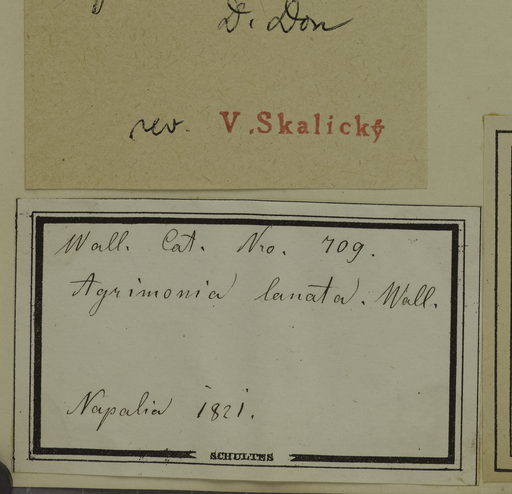 D. Don
rev. V. Skalický
Wall. Cat. No. 709.
Agrimonia lanata. Wall.
Napalia 1821.
SCHULTES